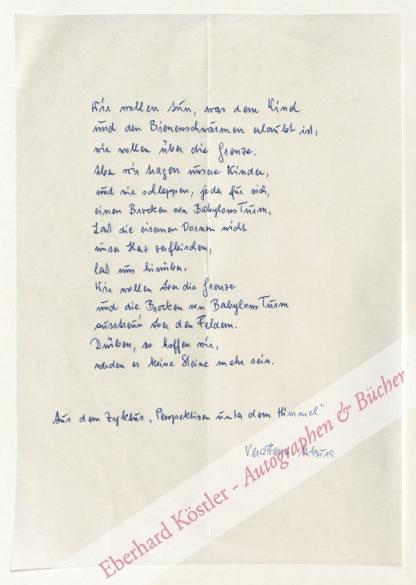 Wir wollen tun, was dem Kind
und den Bienenschwärmen erlaubt ist,
wir wollen über die Grenze.
Aber wir tragen unsere Kinder,
und wir schleppen, jeder für sich,
einen Brocken von Babylons Turm.
Laß die eisernen Dornen nicht
unser Herz zerfleischen,
laß uns hinüber.
Wir wollen über die Grenze
und die Brocken von Babylons Turm
ausstreun über den Feldern.
Drüben, so hoffen wir,
werden es keine Steine mehr sein.
Aus dem Zyklus „Perspektiven unter dem Himmel"
Eberhard Köstler - Autographen & Bücher